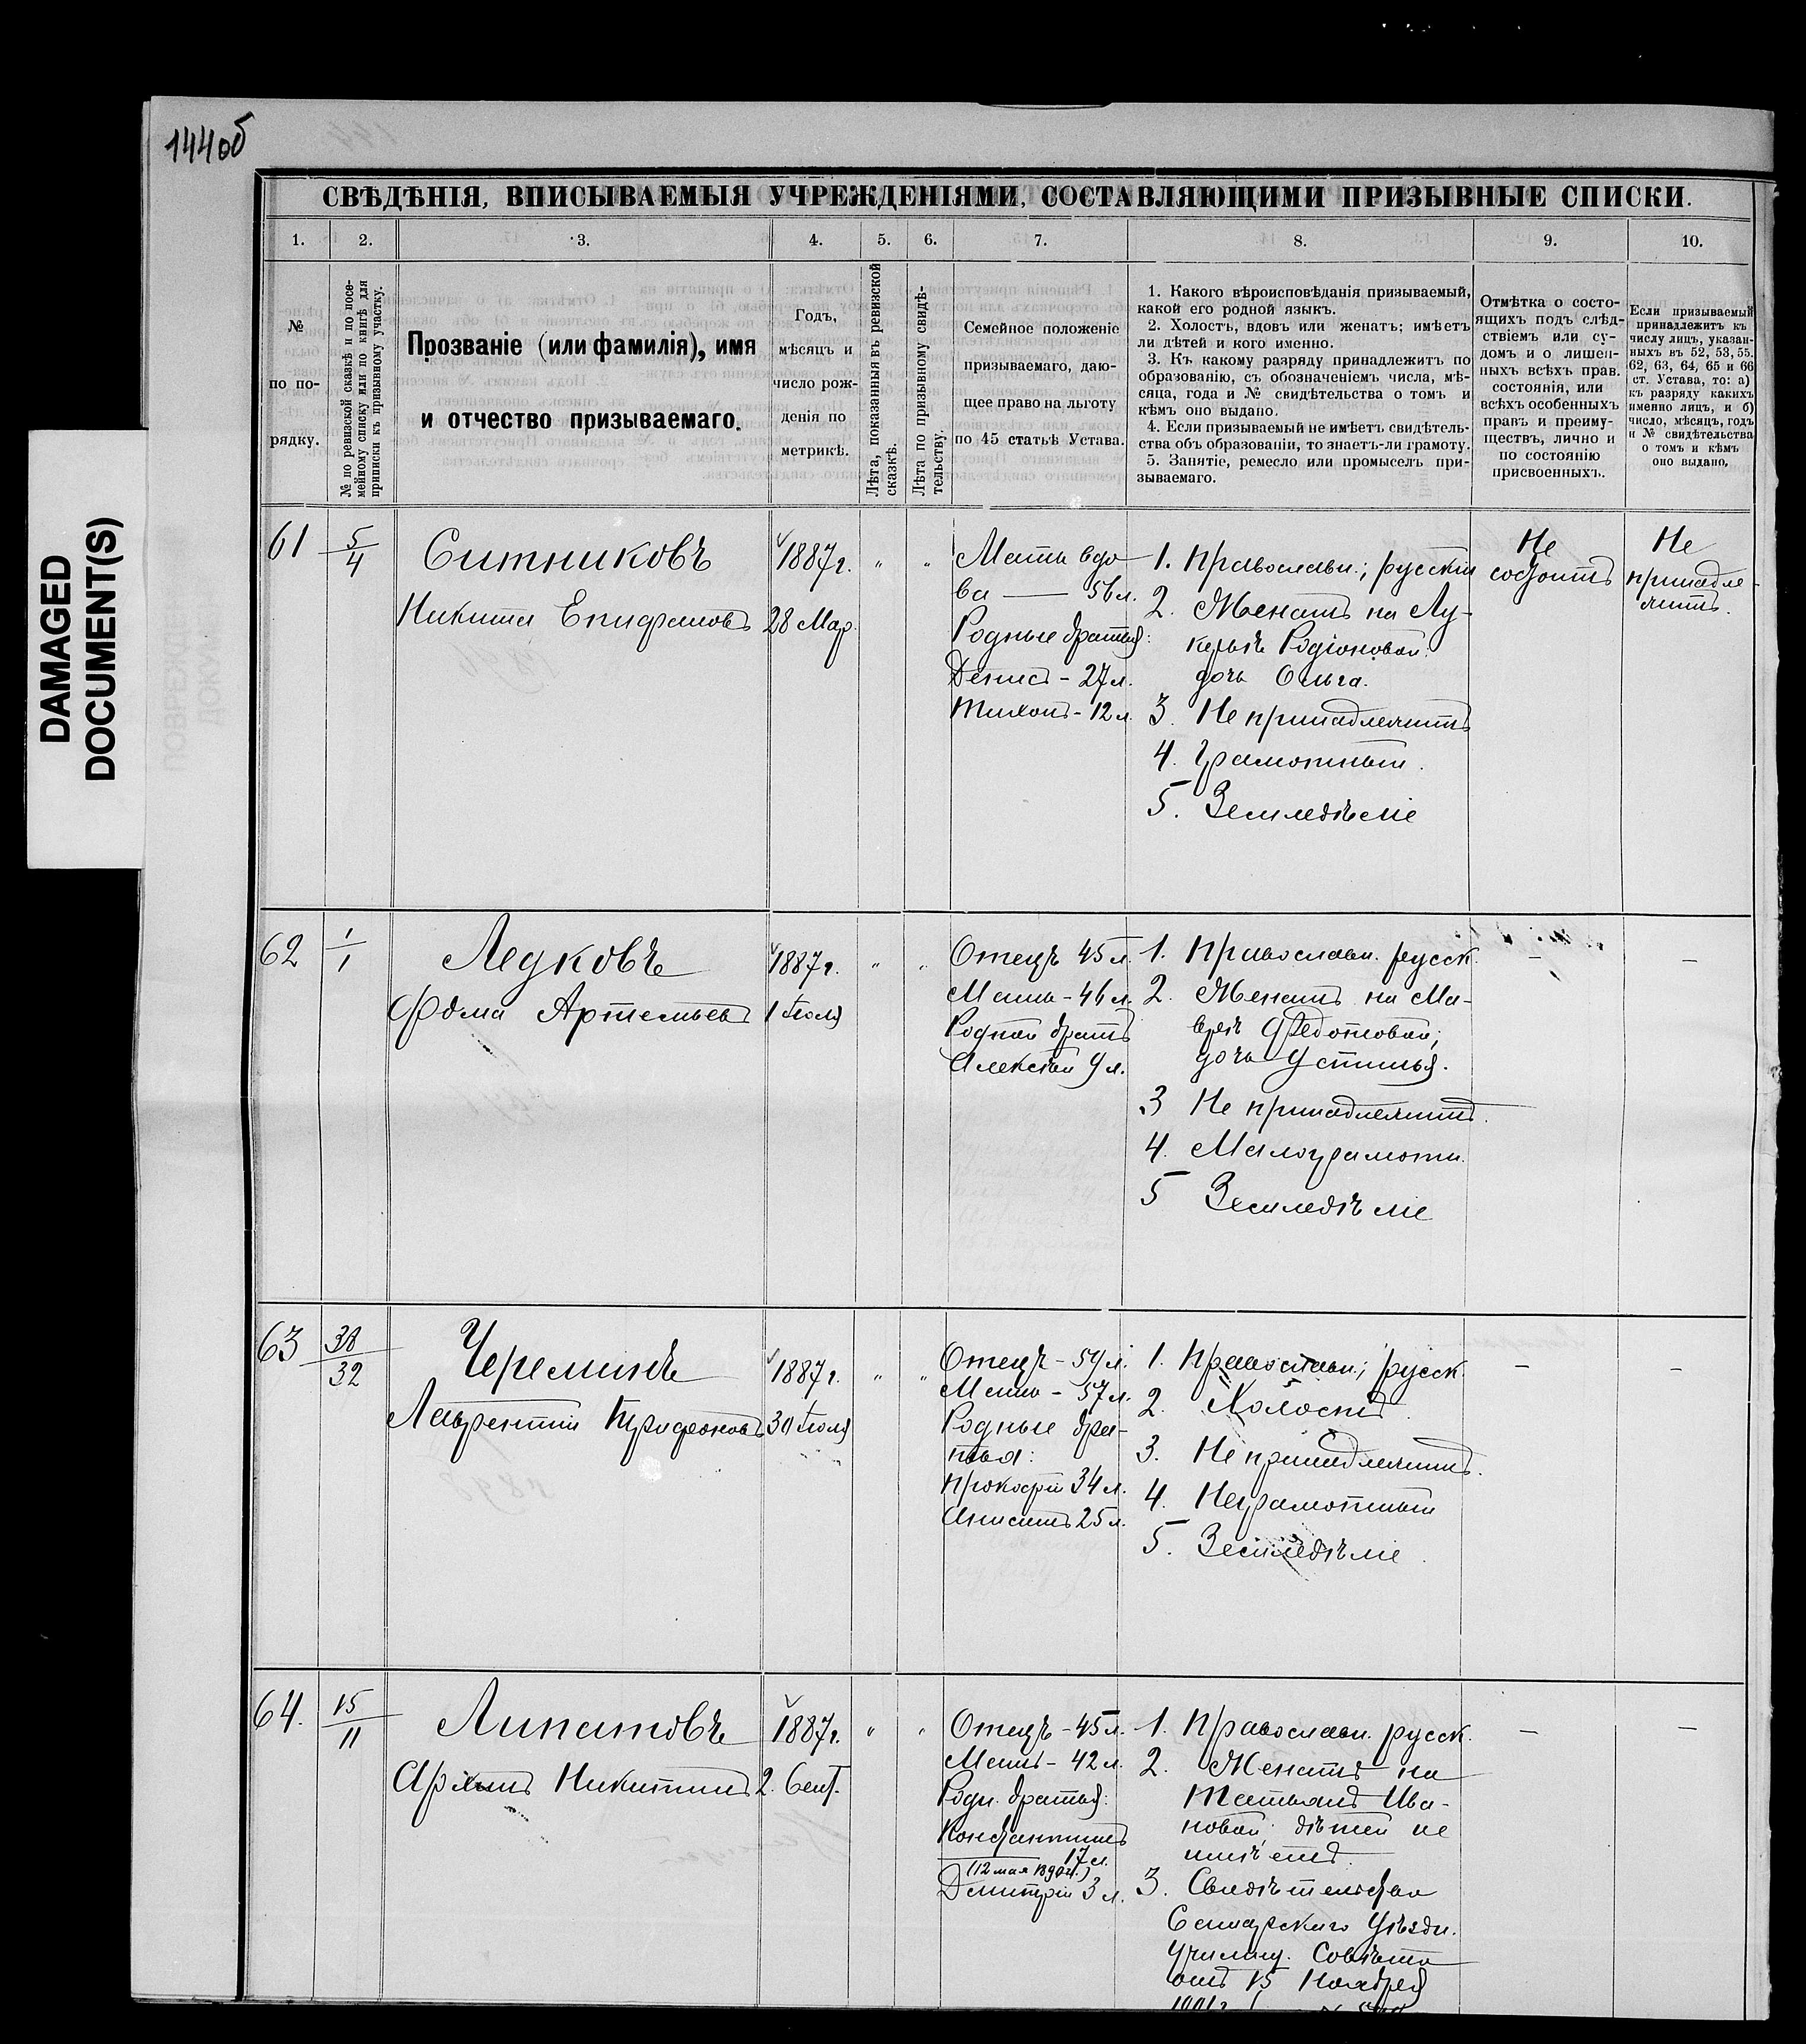 144об
DAMAGED
DOCUMENT(S)
СВѢДѢНІЯ, ВПИСЫВАЕМЫЯ УЧРЕЖДЕНІЯМИ, СОСТАВЛЯЮЩИМИ ПРИЗЫВНЫЕ СПИСКИ.
1. 2. 3. 4. 5. 6. 7. 8. 9. 10.
№
по по-
рядку.
№ по ревизской сказкѣ и по посе-
мейному списку или по книгѣ для
приписки къ призывному участку.
Прозваніе (или фамилія), имя
и отчество призываемаго.
Годъ,
мѣсяцъ и
число рож-
денія по
метрикѣ.
Лѣта, показанныя въ ревизской
сказкѣ.
Лѣта по призывному свидѣ-
тельству.
Семейное положеніе
призываемаго, даю-
щее право на льготу
по 45 статьѣ Устава.
1. Какого вѣроисповѣданія призываемый,
какой его родной языкъ.
2. Холостъ, вдовъ или женатъ; имѣетъ
ли дѣтей и кого именно.
3. Къ какому разряду принадлежитъ по
образованію, съ обозначеніемъ числа, мѣ-
сяца, года и № свидѣтельства о томъ и
кѣмъ оно выдано.
4. Если призываемый не имѣетъ свидѣтель-
ства объ образованіи, то знаетъ-ли грамоту.
5. Занятіе, ремесло или промыселъ при-
зываемаго.
Отмѣтка о состо-
ящихъ подъ слѣд-
ствіемъ или су-
домъ и о лишен-
ныхъ всѣхъ прав.
состоянія, или
всѣхъ особенныхъ
правъ и преиму-
ществъ, лично и
по состоянію
присвоенныхъ.
Если призываемый
принадлежитъ къ
числу лицъ, указан-
ныхъ въ 52, 53, 55.
62, 63, 64, 65 и 66
ст. Устава, то: а)
къ разряду какихъ
именно лицъ, и б)
число, мѣсяцъ, годъ
и № свидѣтельства
о томъ и кѣмъ
оно выдано,
61
5
4
Ситниковъ
Никита Епифановъ
1887г.
28 Мар.
" "
Мать вдо
ва — 56 л.
Родные братья:
Денисъ - 27 л.
Тихонъ - 12 л.
1. Православн.; русскій
2. Женатъ на Лу-
керьѣ Родіоновой:
дочь Ольга.
3. Не принадлежитъ
4. Грамотный.
5. Земледѣліе
Не
состоитъ
Не
принадле-
житъ.
62
1
1
Ледковъ
Фома Артемьевъ
1887г.
1 Іюля
" "
Отецъ 45 л.
Мать - 46 л.
Родной братъ
Алексѣй 9 л.
1. Православн. русск.
2. Женатъ на Ма-
врѣ Федотовой;
дочь Устинья.
3 Не принадлежитъ.
4. Малограмотн.
5 Земледѣліе
–
–
63
38
32
Череминъ
Лаврентій Трифоновъ
1887г.
30 Іюля
" "
Отецъ - 59 л.
Мать - 57 л.
Родные бра-
тья:
Прокофій 34 л.
Анисимъ 25 л.
1. Православн.; русск.
2. Холостъ.
3. Не принадлежитъ.
4. Неграмотный
5. Земледѣліе.
–
–
64.
15
11
Липатовъ
Архипъ Никитинъ
1887г.
2. Сент.
" "
Отецъ - 45 л.
Мать - 42 л.
Родн. братья:
Константинъ
17 л.
(12 мая 1890г.)
Дмитрій 3 л.
1. Православн. русск.
2. Женатъ на
Татьянѣ Ива-
новой; дѣтей не
имѣетъ.
3. Свидѣтельство
Самарскаго Уѣздн.
Училищ. Совѣта
отъ 15 Ноября
–
–